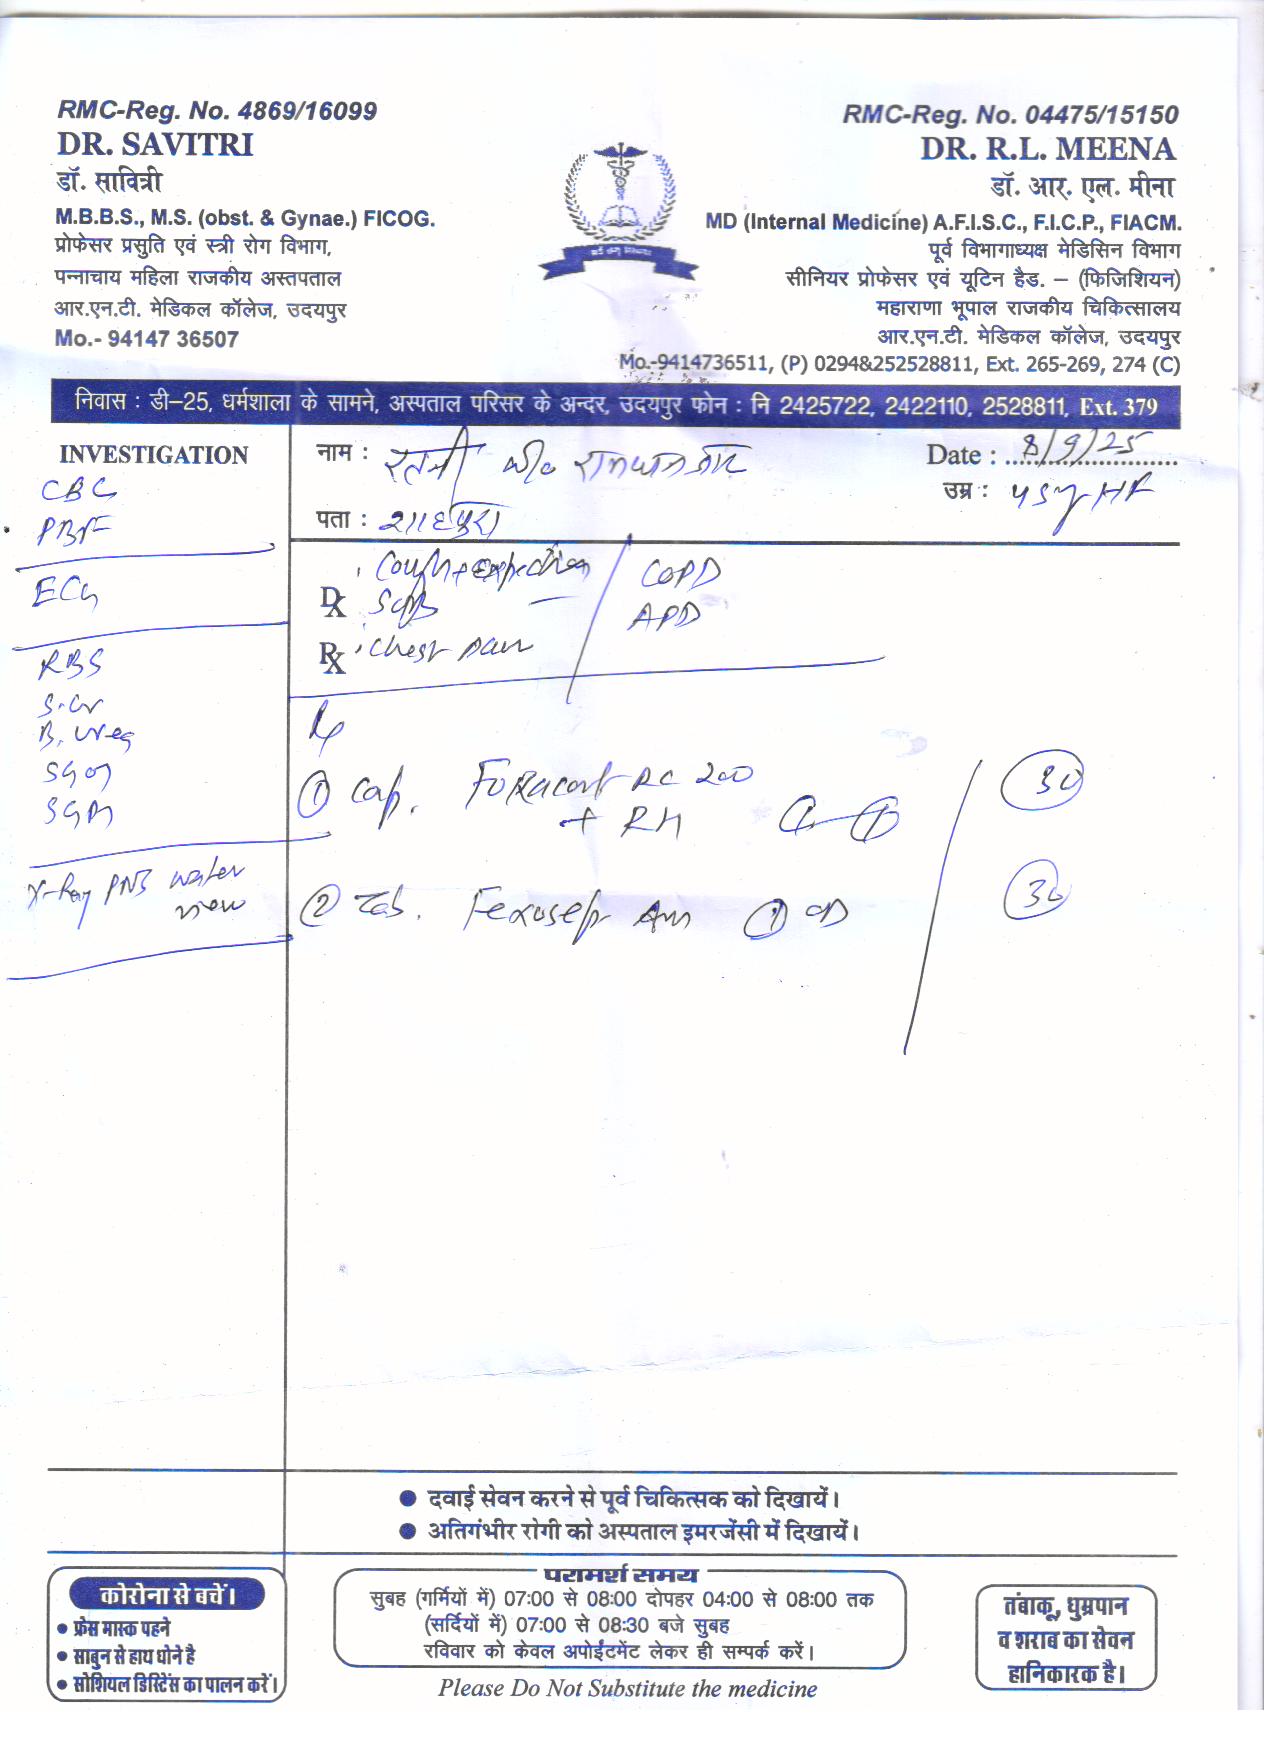 RMC-Reg. No. 4869/16099
DR. SAVITRI
डॉ. सावित्री
M.B.B.S., M.S. (obst. & Gynae.) FICOG.
प्रोफेसर प्रसुति एवं स्त्री रोग विभाग,
पन्नाधाय महिला राजकीय अस्तपताल
आर.एन.टी. मेडिकल कॉलेज, उदयपुर
Mo.- 94147 36507
RMC-Reg. No. 04475/15150
DR. R.L. MEENA
डॉ. आर. एल. मीना
MD (Internal Medicine) A.F.I.S.C., F.I.C.P., FIACM.
पूर्व विभागाध्यक्ष मेडिसिन विभाग
सीनियर प्रोफेसर एवं यूटिन हैड. – (फिजिशियन)
महाराणा भूपाल राजकीय चिकित्सालय
आर.एन.टी. मेडिकल कॉलेज, उदयपुर
Mo.-9414736511, (P) 0294&252528811, Ext. 265-269, 274 (C)
निवास : डी–25, धर्मशाला के सामने, अस्पताल परिसर के अन्दर, उदयपुर फोन : नि 2425722, 2422110, 2528811, Ext. 379
INVESTIGATION
CBC
PBF
ECG
RBS
S.Cr
B. Urea
SGOT
SGPT
X-Ray PNS water
view
नाम : रतनी w/o
Date : 8/9/25
उम्र :
पता : शाहपुरा
Cough + expectation
COPD
DX SOB
APD
RX Chest pain
① Cap. Foracort RC 200
+ RH ①–① 30
② Tab. ① OD 30
● दवाई सेवन करने से पूर्व चिकित्सक को दिखायें।
● अतिगंभीर रोगी को अस्पताल इमरजेंसी में दिखायें।
कोरोना से बचें।
● फ्रेस मास्क पहने
● साबुन से हाथ धोने है
● सोशियल डिस्टिेंस का पालन करें।
परामर्श समय
सुबह (गर्मियों में) 07:00 से 08:00 दोपहर 04:00 से 08:00 तक
(सर्दियों में) 07:00 से 08:30 बजे सुबह
रविवार को केवल अपोईंटमेंट लेकर ही सम्पर्क करें।
Please Do Not Substitute the medicine
तंबाकू, धुम्रपान
व शराब का सेवन
हानिकारक है।